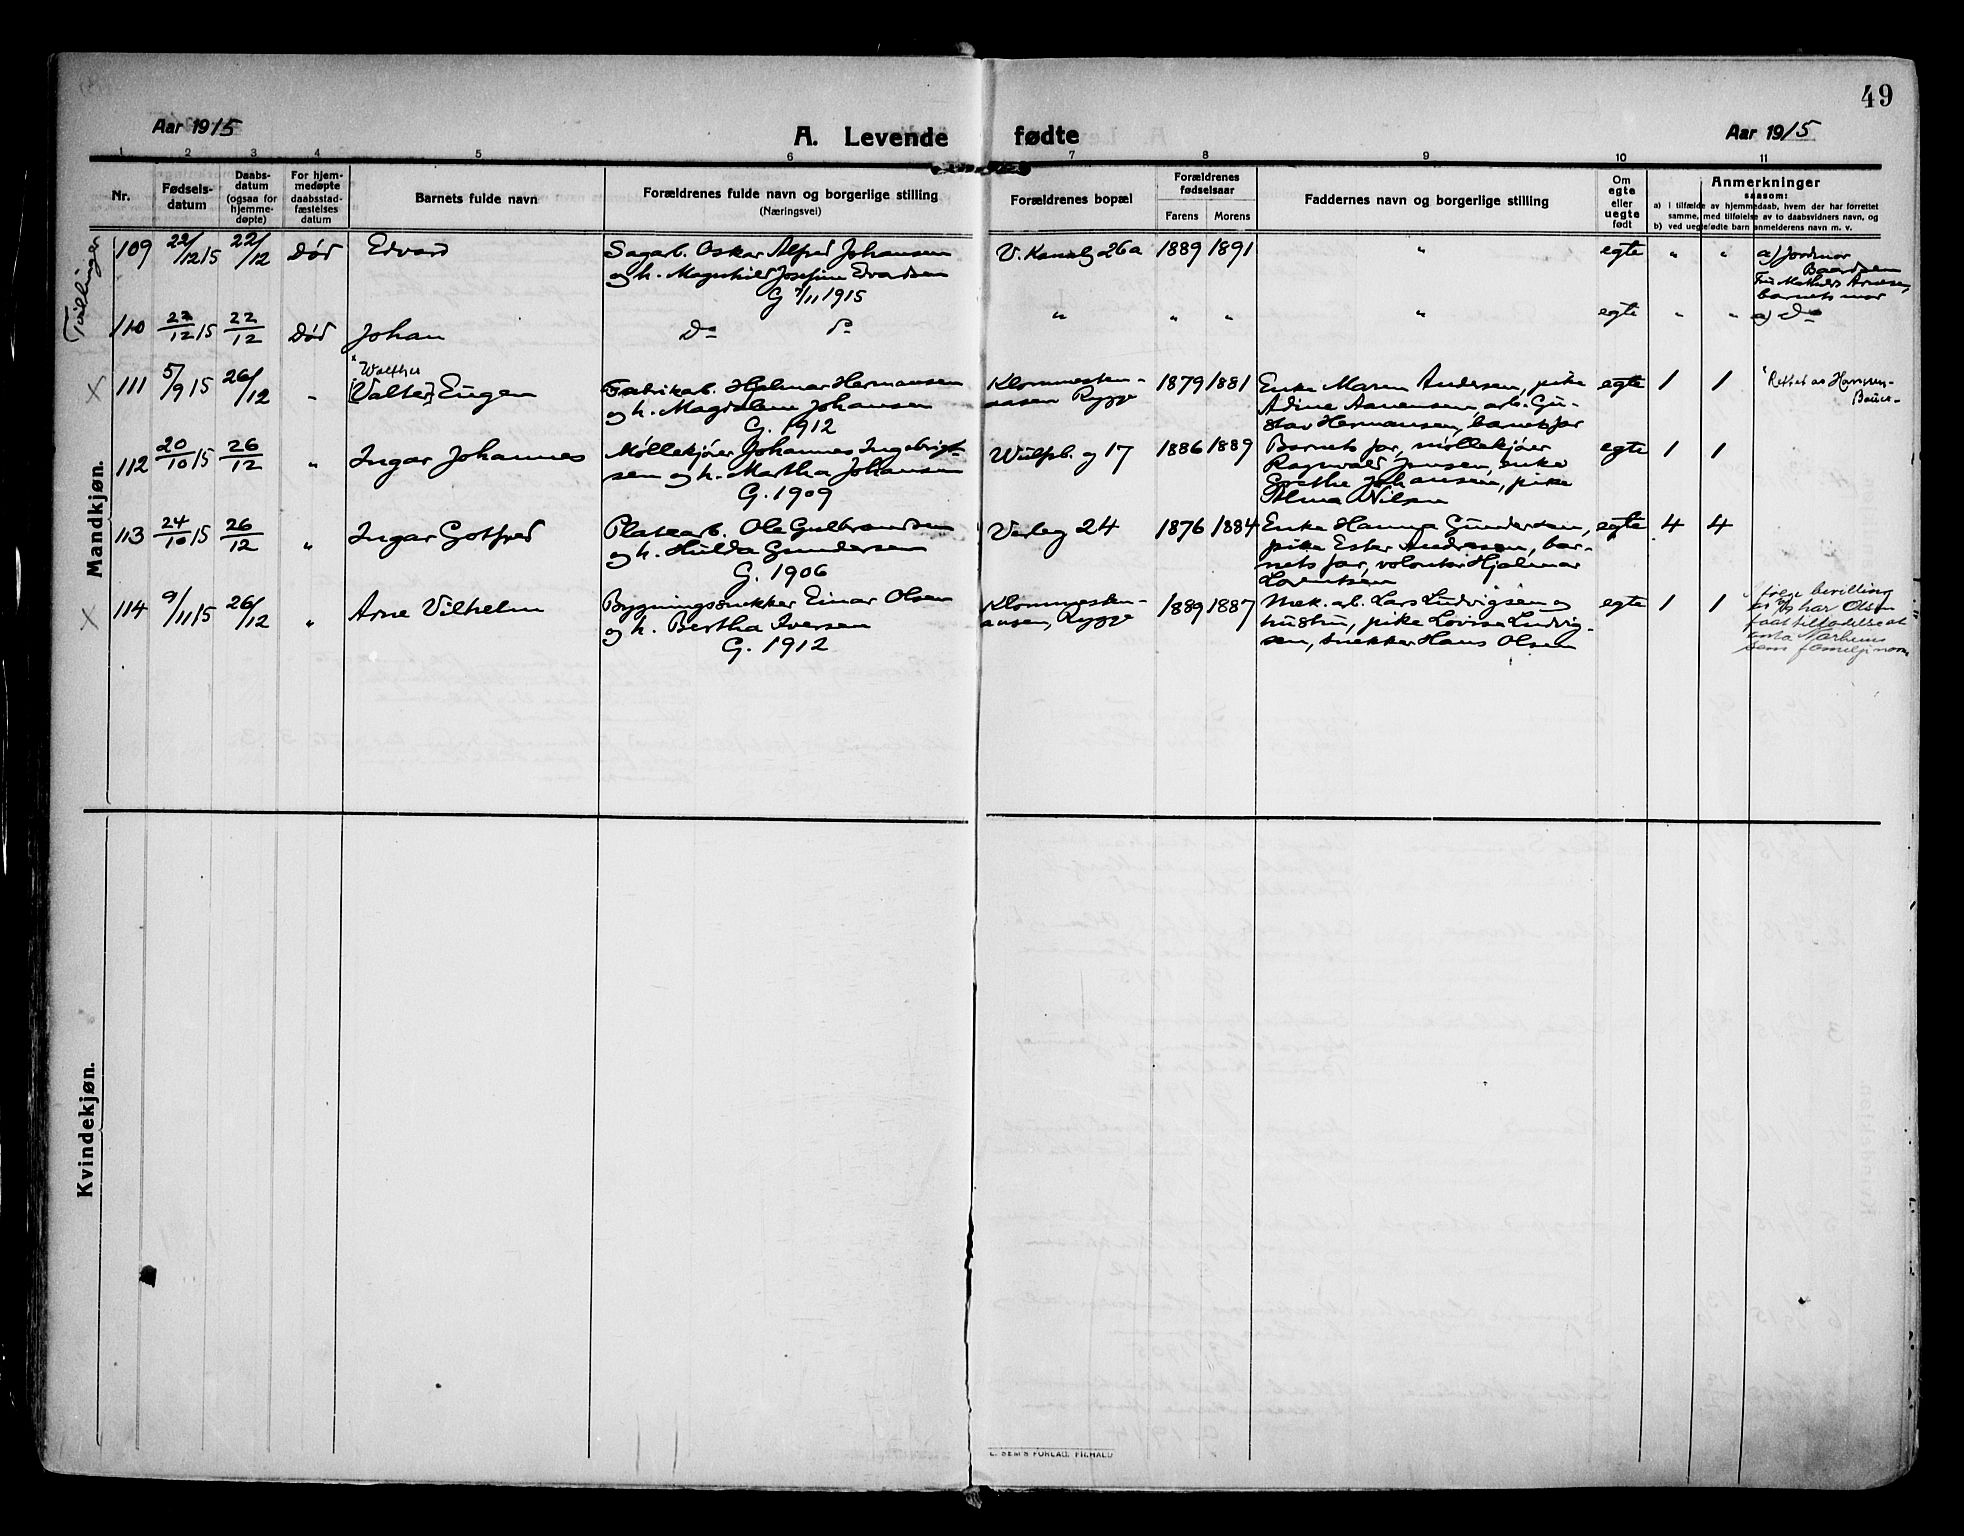 49
Aar 1915
A. Levende fødte
Aar 1915
1 2 3 4 5 6 7 8 9 10 11
Nr.
Fødsels-
datum
Daabs-
datum
(ogsaa for
hjemme-
døpte)
For hjem-
medøpte
daabsstad-
fæstelses
datum
Barnets fulde navn
Forældrenes fulde navn og borgerlige stilling
(Næringsvei)
Forældrenes bopæl
Forældrenes
fødselsaar
Farens Morens
Faddernes navn og borgerlige stilling
Om
egte
eller
uegte
født
Anmerkninger
saasom:
a) i tilfælde av hjemmedaab, hvem der har forrettet
samme, med tilføielse av to daabsvidners navn, og
b) ved uegtefødte barn anmelderens navn m. v.
Mandkjøn.
Tvillinger
109 22/12 15 22/12 Død Edvard
Sagarb. Oskar Alfred Johansen
og h. Magnhild Josefine
G 7/11 1915
V. Kanalg 26a 1889 1891 " egte " "
a) Jordmor
Baardsen
Fru Mathilde
barnets mor
110 22/12 15 22/12 Død Johan
Do Do " " " " egte " " a) Do
x 111 5/9 15 26/12 "
Walther
[Valter] Eugen
Fabrikarb. Hjalmar Hermansen
og h. Magdalene Johansen
G. 1912
Klommesten-
aasen Rygge
1879 1881
Enke Maren Andersen, pike
Adine Aanensen, arb. Gu-
stav Hermansen, barnets far
egte 1 1
Rettet av
112 20/10 15 26/12 " Ingar Johannes
Møllekjører Johannes Ingebrigt-
sen og h. Martha Johansen
G. 1909
Wulfsb. g 17 1886 1889
Barnets far, møllekjører
Ragnvald Jensen, enke
Grethe Johansen, pike
Alma Nilsen
egte 1 1
113 24/10 15 26/12 " Ingar Gotfred
Platearb. Ole Gulbrandsen
og h. Hulda Gundersen
G. 1906
24 1876 1884
Enke Hanna Gundersen,
pike Ester Andresen, bar-
nets far, volontør Hjalmar
Lorentsen
egte 4 4
x 114 9/11 15 26/12 " Arne Vilhelm
Bygningssnekker Einar Olsen
og h. Bertha Iversen
G. 1912
Klommesten-
aasen, Rygge
1889 1887
Mek. arb. Lars Ludvigsen og
hustru, pike Lovise Ludvig-
sen, snekker Hans Olsen
egte 1 1
følge bevilling
har Olsen
faat tilladelse at
som familjenavn
Kvindekjøn.
E. SEM'S FORLAG, FR.HALD